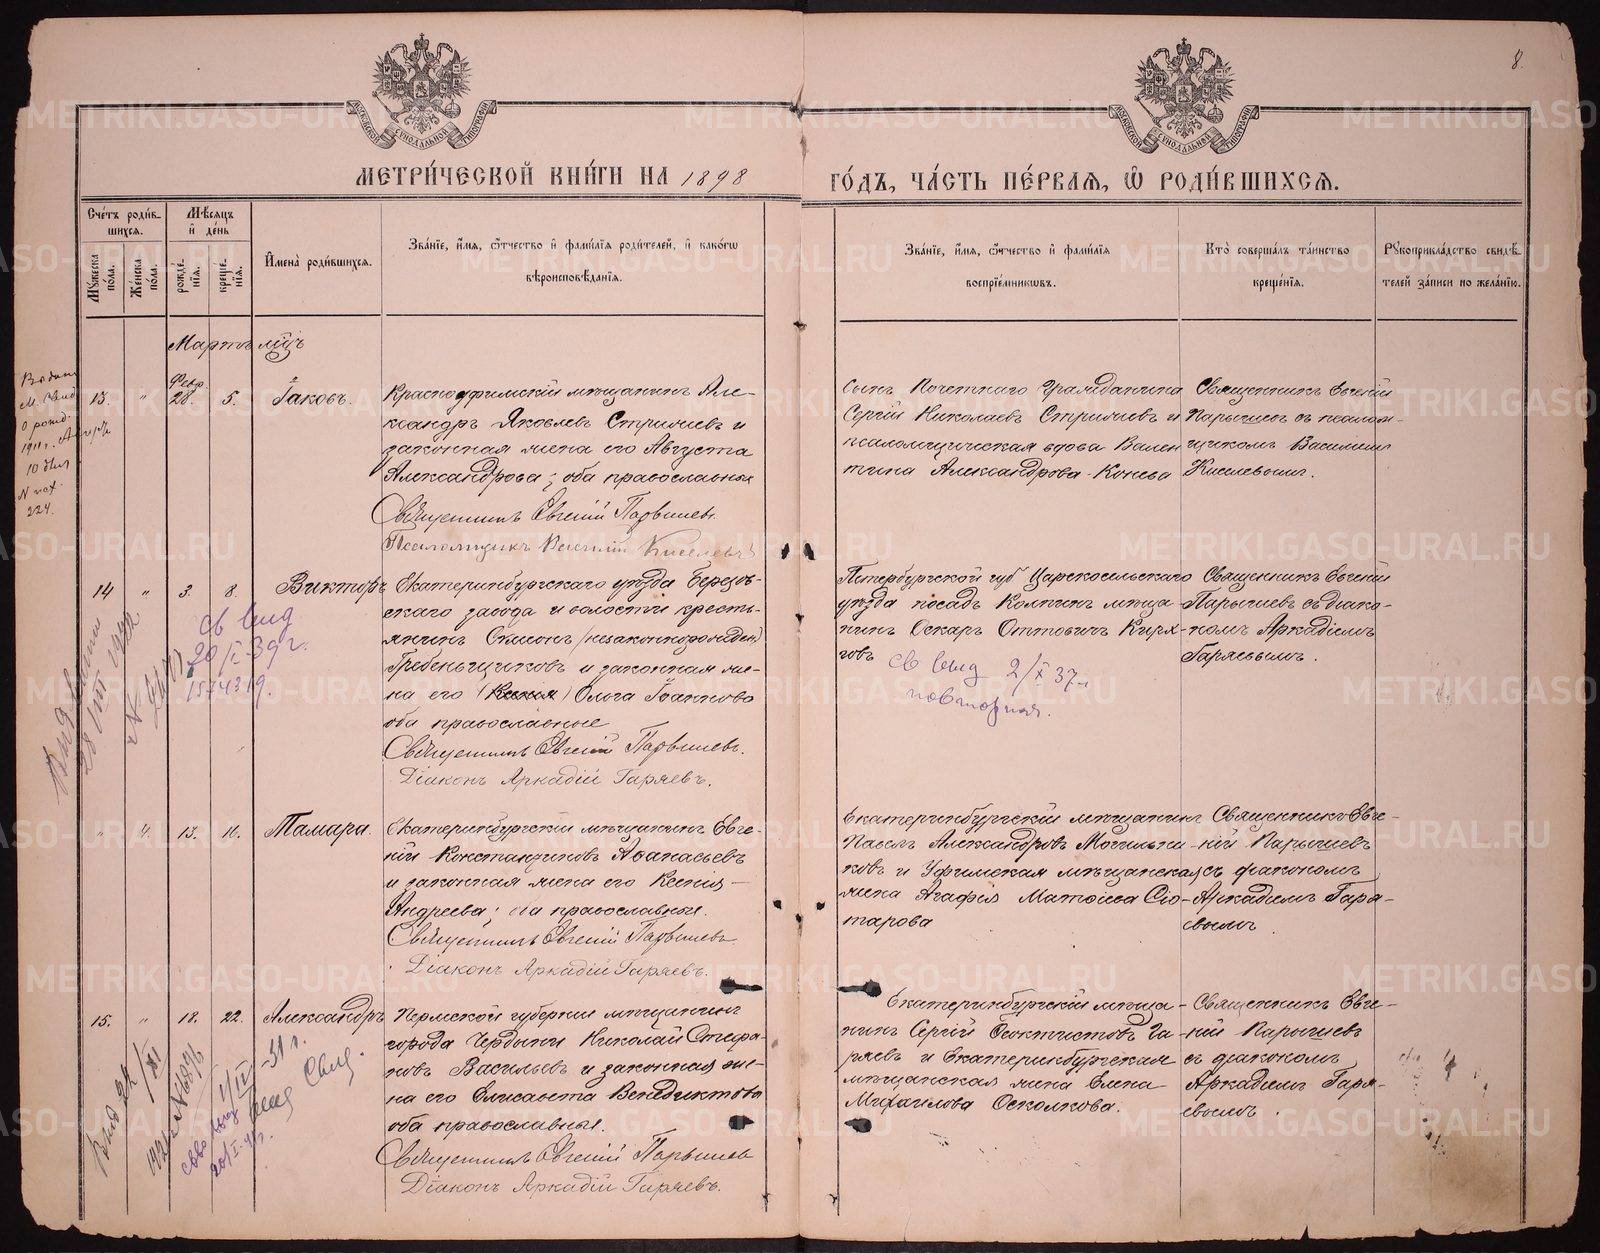 8.
МЕТРИ́ЧЕСКОЙ КНИ́ГИ НА 1898 ГО́ДЪ, ЧА́СТЬ ПЕ́РВАЯ, Ѡ РОДИ́ВШИХСЯ.
Сче́тъ роди́в-
шихся.
Мѣ́сяцъ
и де́нь
Му́жеска
по́ла.
Же́нска
по́ла.
рожде́-
нія.
креще́-
нія.
И́мена роди́вшихся.
Зва́ніе, и́мя, ѻ́тчество и фами́лія роди́телей, и како́гѡ
вѣроисповѣ́данія.
Зва́ніе, и́мя, ѻ́тчество и фами́лія
воспріе́мникѡвъ.
Кто̀ соверша́лъ та́инство
креще́нія.
Рукоприкла́дство свидѣ́-
телей за́писи по жела́нію.
Мартъ мцъ
13. " Февр. 28. 5. Іаковъ.
Красноуфимскій мѣщанинъ Але-
ксандръ Яковлевъ Стрижевъ и
законная жена его Августа
Александрова; оба православные
Священникъ Евгеній Парышевъ.
Псаломщикъ Василій Киселевъ
Сынъ Почетнаго Гражданина
Сергій Николаевъ Стрижевъ и
псаломщическая вдова Вален
тина Александрова Конева
Священникъ Евгеній
Парышевъ съ псалом-
щикомъ Василіемъ
Киселевымъ.
10
N
224.
14 " 3. 8. Викторъ
Екатеринбургскаго уѣзда Березов-
скаго завода и волости кресть-
янинъ Симеонъ (незаконнорожден)
Гребеньщиковъ и законная же-
на его (Ксенія) Ольга Іоаннова
оба православные
Священникъ Евгеній Парышевъ.
Діаконъ Аркадій Гаряевъ.
Петербургской губ Царскосельскаго
уѣзда посадъ Колпинъ мѣща-
нинъ Оскаръ Оттовичъ Кирх-
говъ
Священникъ Евгеній
Парышевъ съ діако-
номъ Аркадіемъ
Гаряевымъ.
св выд
20/I-39 г.
св выд 2/X 37 г
повторная.
" 4. 13. 11. Тамара.
Екатеринбургскій мѣщанинъ Евге-
ній Константиновъ Аѳанасьевъ
и законная жена его Ксенія
Андреева; оба православные.
Священникъ Евгеній Парышевъ
Діаконъ Аркадій Гаряевъ.
Екатеринбургскій мѣщанинъ
Павелъ Александровъ Могильни-
ковъ и Уфимская мѣщанская
жена Агафія Матѳіева Сю-
тарова
Священникъ Евге-
ній Парышевъ
съ діакономъ
Аркадіемъ Гаря-
евымъ
15. " 18. 22. Александръ
Пермской губерніи мѣщанинъ
города Чердыни Николай Стефа-
новъ Васильевъ и законная же-
на его Елисавета Венедиктова
оба православные.
Священникъ Евгеній Парышевъ
Діаконъ Аркадій Гаряевъ.
Екатеринбургскій мѣща-
нинъ Сергій Ѳеоктистовъ Га-
ряевъ и Екатеринбургская
мѣщанская жена Елена
Михаилова Осколкова.
Священникъ Евге-
ній Парышевъ
съ діакономъ
Аркадіемъ Гаря-
евымъ.
METRIKI.GASO-URAL.RU